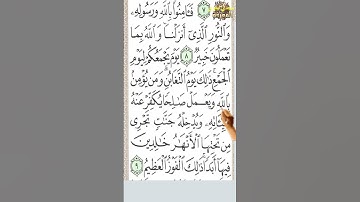 ۷ فَـَٔامِنُوا۟ بِٱللَّهِ وَرَسُولِهِۦ
وَٱلنُّورِ ٱلَّذِىٓ أَنزَلْنَا وَٱللَّهُ بِمَا
تَعْمَلُونَ خَبِيرٌ ۸ يَوْمَ يَجْمَعُكُمْ لِيَوْمِ
ٱلْجَمْعِ ذَٰلِكَ يَوْمُ ٱلتَّغَابُنِ وَمَن يُؤْمِنۢ
بِٱللَّهِ وَيَعْمَلْ صَـٰلِحًا يُكَفِّرْ عَنْهُ
سَيِّـَٔاتِهِۦ وَيُدْخِلْهُ جَنَّـٰتٍ تَجْرِى
مِن تَحْتِهَا ٱلْأَنْهَـٰرُ خَـٰلِدِينَ
فِيهَآ أَبَدًا ذَٰلِكَ ٱلْفَوْزُ ٱلْعَظِيمُ ۹